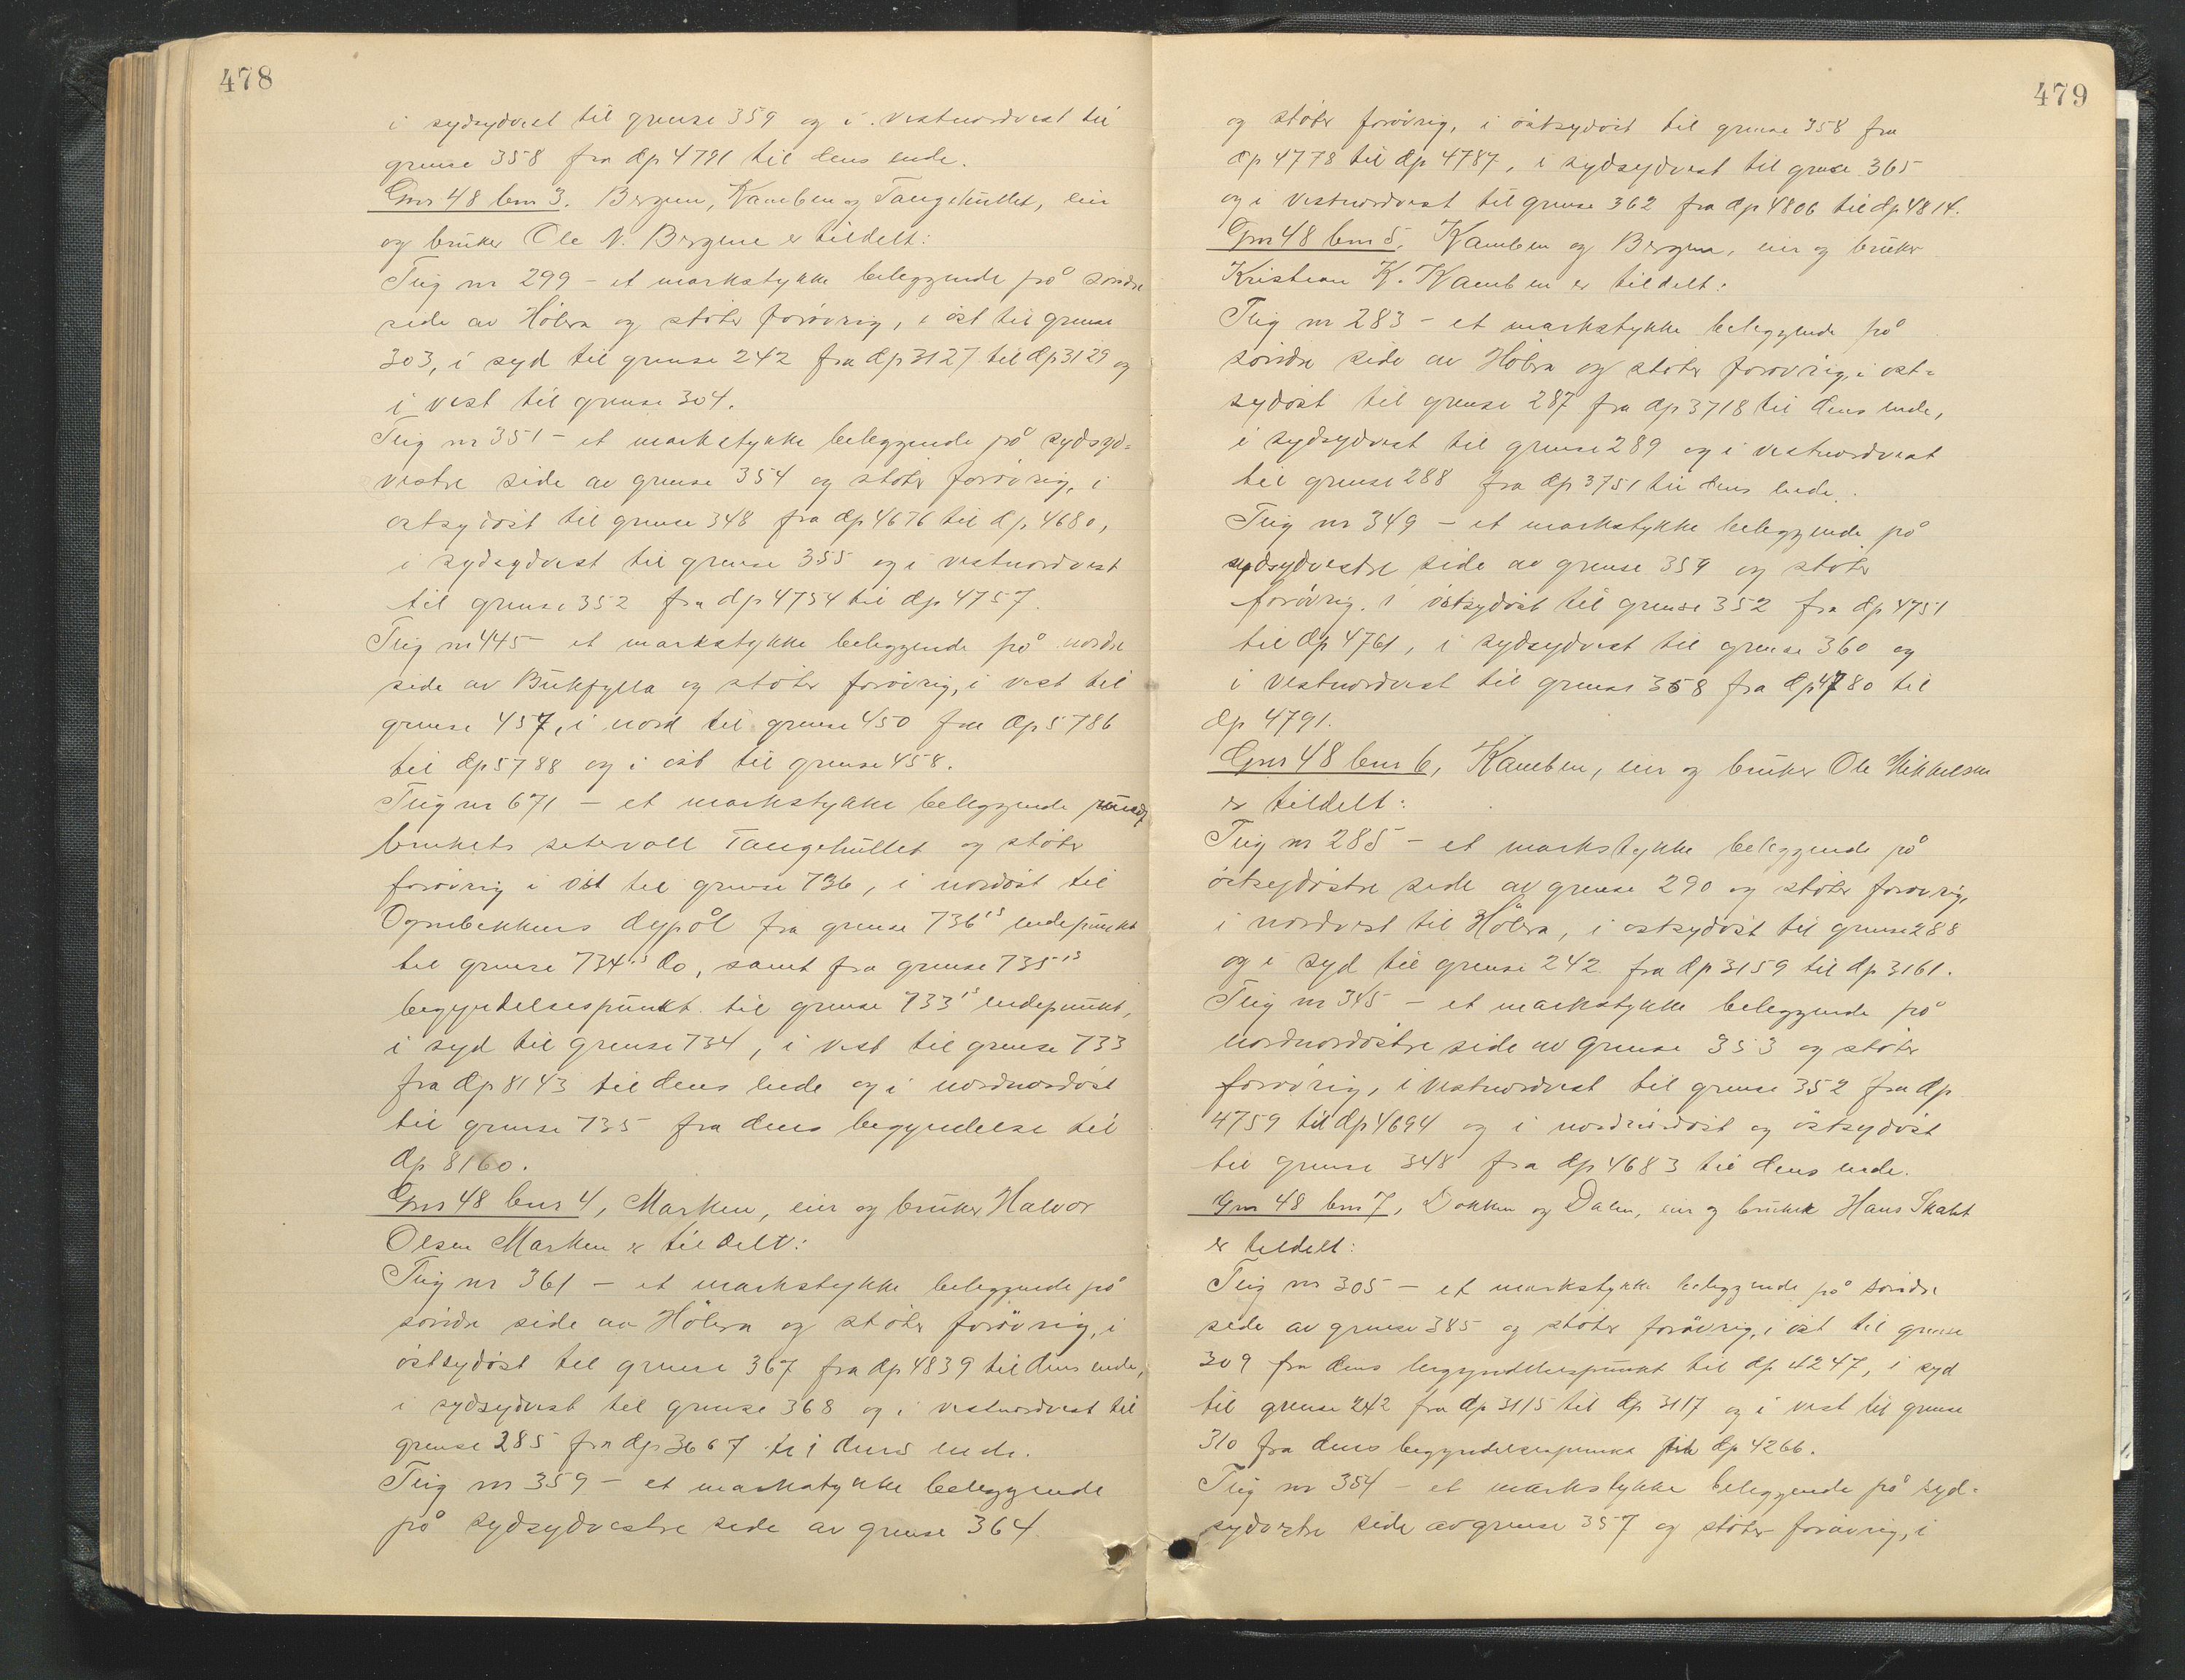 478
i sydsydvest til grense 359 og i vestnordvest til
grense 358 fra dp 4791 til dens ende.
Gnr 48 bnr 3. Bergene, Kamben og Tangehullet, eier
og bruker Ole N. Bergene er tildelt:
Teig nr 299 - et markstykke beliggende på søndre
side av Hölera og støter forøvrig, i øst til grense
303, i syd til grense 242 fra dp 3127 til dp 3129 og
i vest til grense 304.
Teig nr 351 - et markstykke beliggende på sydsyd=
vestre side av grense 354 og støter forøvrig, i
østsydøst til grense 348 fra dp 4676 til dp 4680,
i sydsydvest til grense 355 og i vestnordvest
til grense 352 fra dp 4754 til dp 4757.
Teig nr 445 - et markstykke beliggende på nordre
side av Bukfylla og støter forøvrig, i vest til
grense 457, i nord til grense 450 fra dp 5786
til dp 5788 og i øst til grense 458.
Teig nr 671 - et markstykke beliggende rundt
brukets setervoll Tangehullet og støter
forøvrig i øst til grense 736, i nordøst til
Ognebekkens dypål fra grense 736's endepunkt
til grense 734's do, samt fra grense 735's
begyndelsespunkt til grense 733's endepunkt,
i syd til grense 734, i vest til grense 733
fra dp 8143 til dens ende og i nordnordøst
til grense 735 fra dens begyndelse til
dp 8160.
Gnr 48 bnr 4, Marken, eier og bruker Halvor
Olsen Marken er tildelt:
Teig nr 361 - et markstykke beliggende på
søndre side av Hölera og støter forøvrig, i
østsydøst til grense 367 fra dp 4839 til dens ende,
i sydsydvest til grense 368 og i vestnordvest til
grense 285 fra dp 3667 til dens ende.
Teig nr 359 - et markstykke beliggende
på sydsydvestre side av grense 364
479
og støter forøvrig, i østsydøst til grense 358 fra
dp 4778 til dp 4787, i sydsydvest til grense 365
og i vestnordvest til grense 362 fra dp 4806 til dp 4814.
Gnr 48 bnr 5, Kamben og Bergene, eier og bruker
Kristian K. Kamben er tildelt:
Teig nr 283 - et markstykke beliggende på
søndre side av Hölera og støter forøvrig, i øst=
sydøst til grense 287 fra dp 3718 til dens ende,
i sydsydvest til grense 289 og i vestnordvest
til grense 288 fra dp 3751 til dens ende.
Teig nr 349 - et markstykke beliggende på
sydsydvestre side av grense 359 og støter
forøvrig. i østsydøst til grense 352 fra dp 4751
til dp 4761, i sydsydvest til grense 360 og
i vestnordvest til grense 358 fra dp 4780 til
dp 4791.
Gnr 48 bnr 6, Kamben, eier og bruker Ole Mikkelsen
er tildelt:
Teig nr 285 - et markstykke beliggende på
østsydøstre side av grense 290 og støter forøvrig,
i nordvest til Hölera, i østsydøst til grense 288
og i syd til grense 242 fra dp 3159 til dp 3161.
Teig nr 345 - et markstykke beliggende på
nordnordøstre side av grense 353 og støter
forøvrig, i vestnordvest til grense 352 fra dp
4759 til dp 4694 og i nordnordøst og østsydøst
til grense 348 fra dp 4683 til dens ende.
Gnr 48 bnr 7, Dokken og Dalen, eier og bruker Hans Skabt
er tildelt:
Teig nr 305 - et markstykke beliggende på søndre
side av grense 385 og støter forøvrig, i øst til grense
309 fra dens begyndelsespunkt til dp 4247, i syd
til grense 242 fra dp 3115 til dp 3117 og i vest til grense
310 fra dens begyndelsespunkt til dp 4266.
Teig nr 354 - et markstykke beliggende på syd-
sydvestre side av grense 357 og støter forøvrig, i